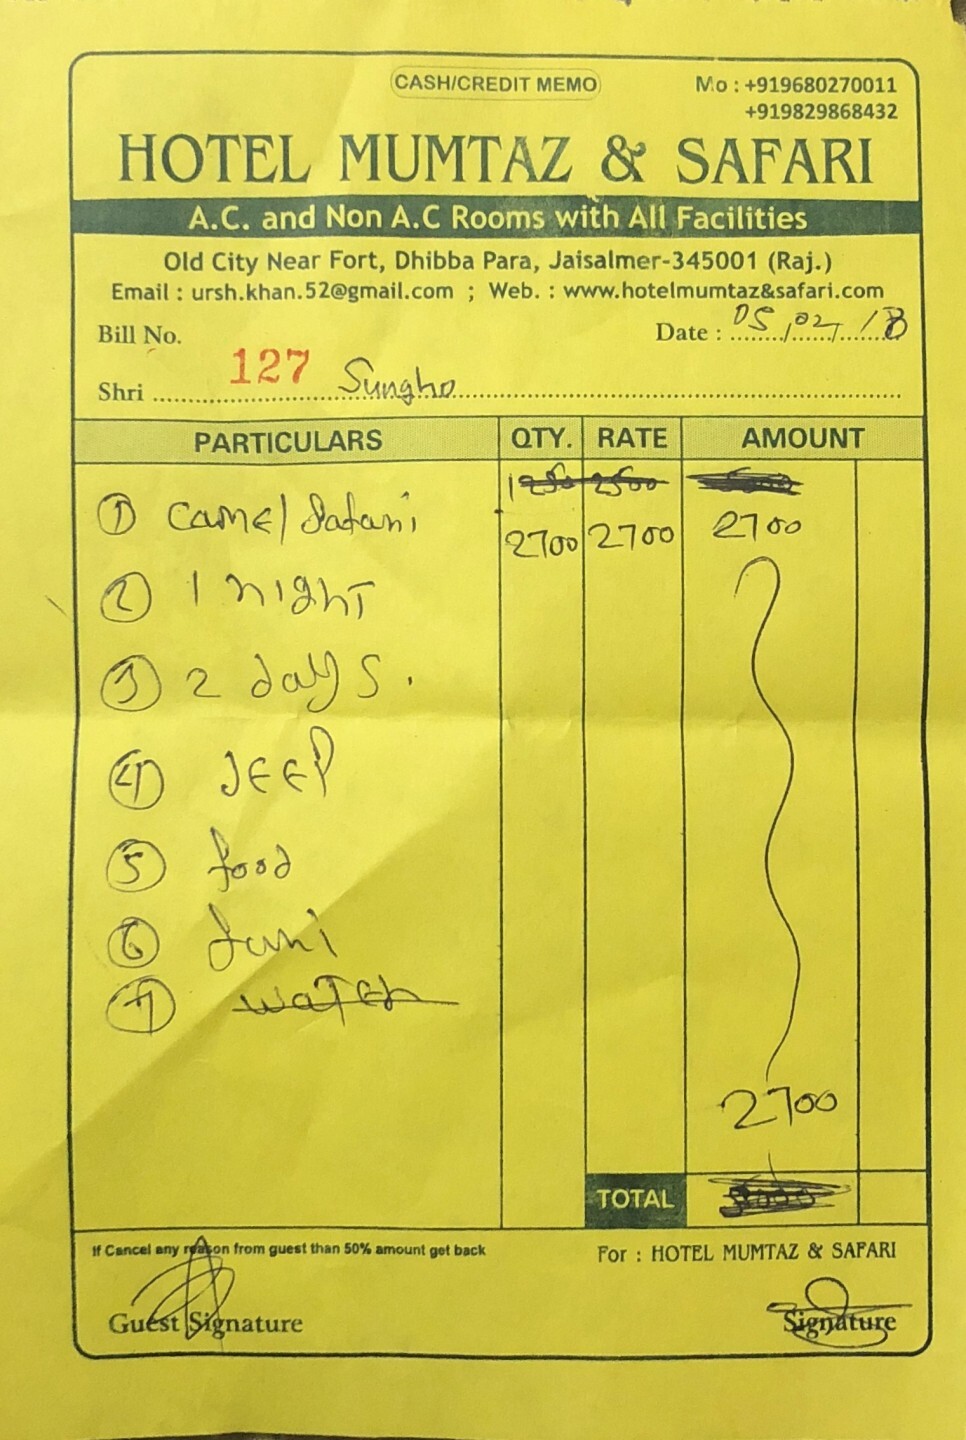 CASH/CREDIT MEMO
Mo : +919680270011
+919829868432
HOTEL MUMTAZ & SAFARI
A.C. and Non A.C Rooms with All Facilities
Old City Near Fort, Dhibba Para, Jaisalmer-345001 (Raj.)
Email : ursh.khan.52@gmail.com ; Web. : www.hotelmumtaz&safari.com
Bill No. 127
Date : 05/02/18
Shri Sungho
PARTICULARS QTY. RATE AMOUNT
1250 2500
① Camel Safari 2700 2700 2700
② 1 night
③ 2 days.
④ JEEP
⑤ food
⑥
⑦ water
2700
TOTAL
If Cancel any reason from guest than 50% amount get back
For : HOTEL MUMTAZ & SAFARI
Guest Signature
Signature